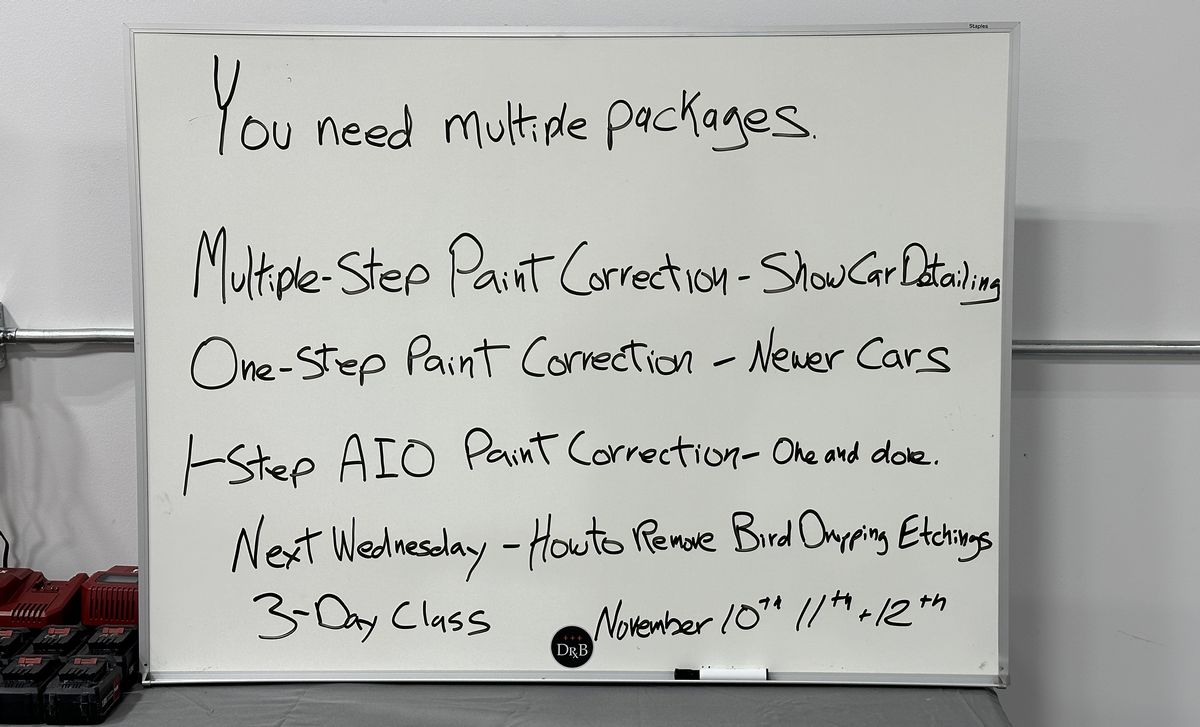 Staples
You need multiple packages.
Multiple-Step Paint Correction - Show Car Detailing
One-Step Paint Correction - Newer Cars
1-Step AIO Paint Correction - One and done.
Next Wednesday - How to Remove Bird Dropping Etchings
3-Day Class November 10th 11th + 12th
DRxB